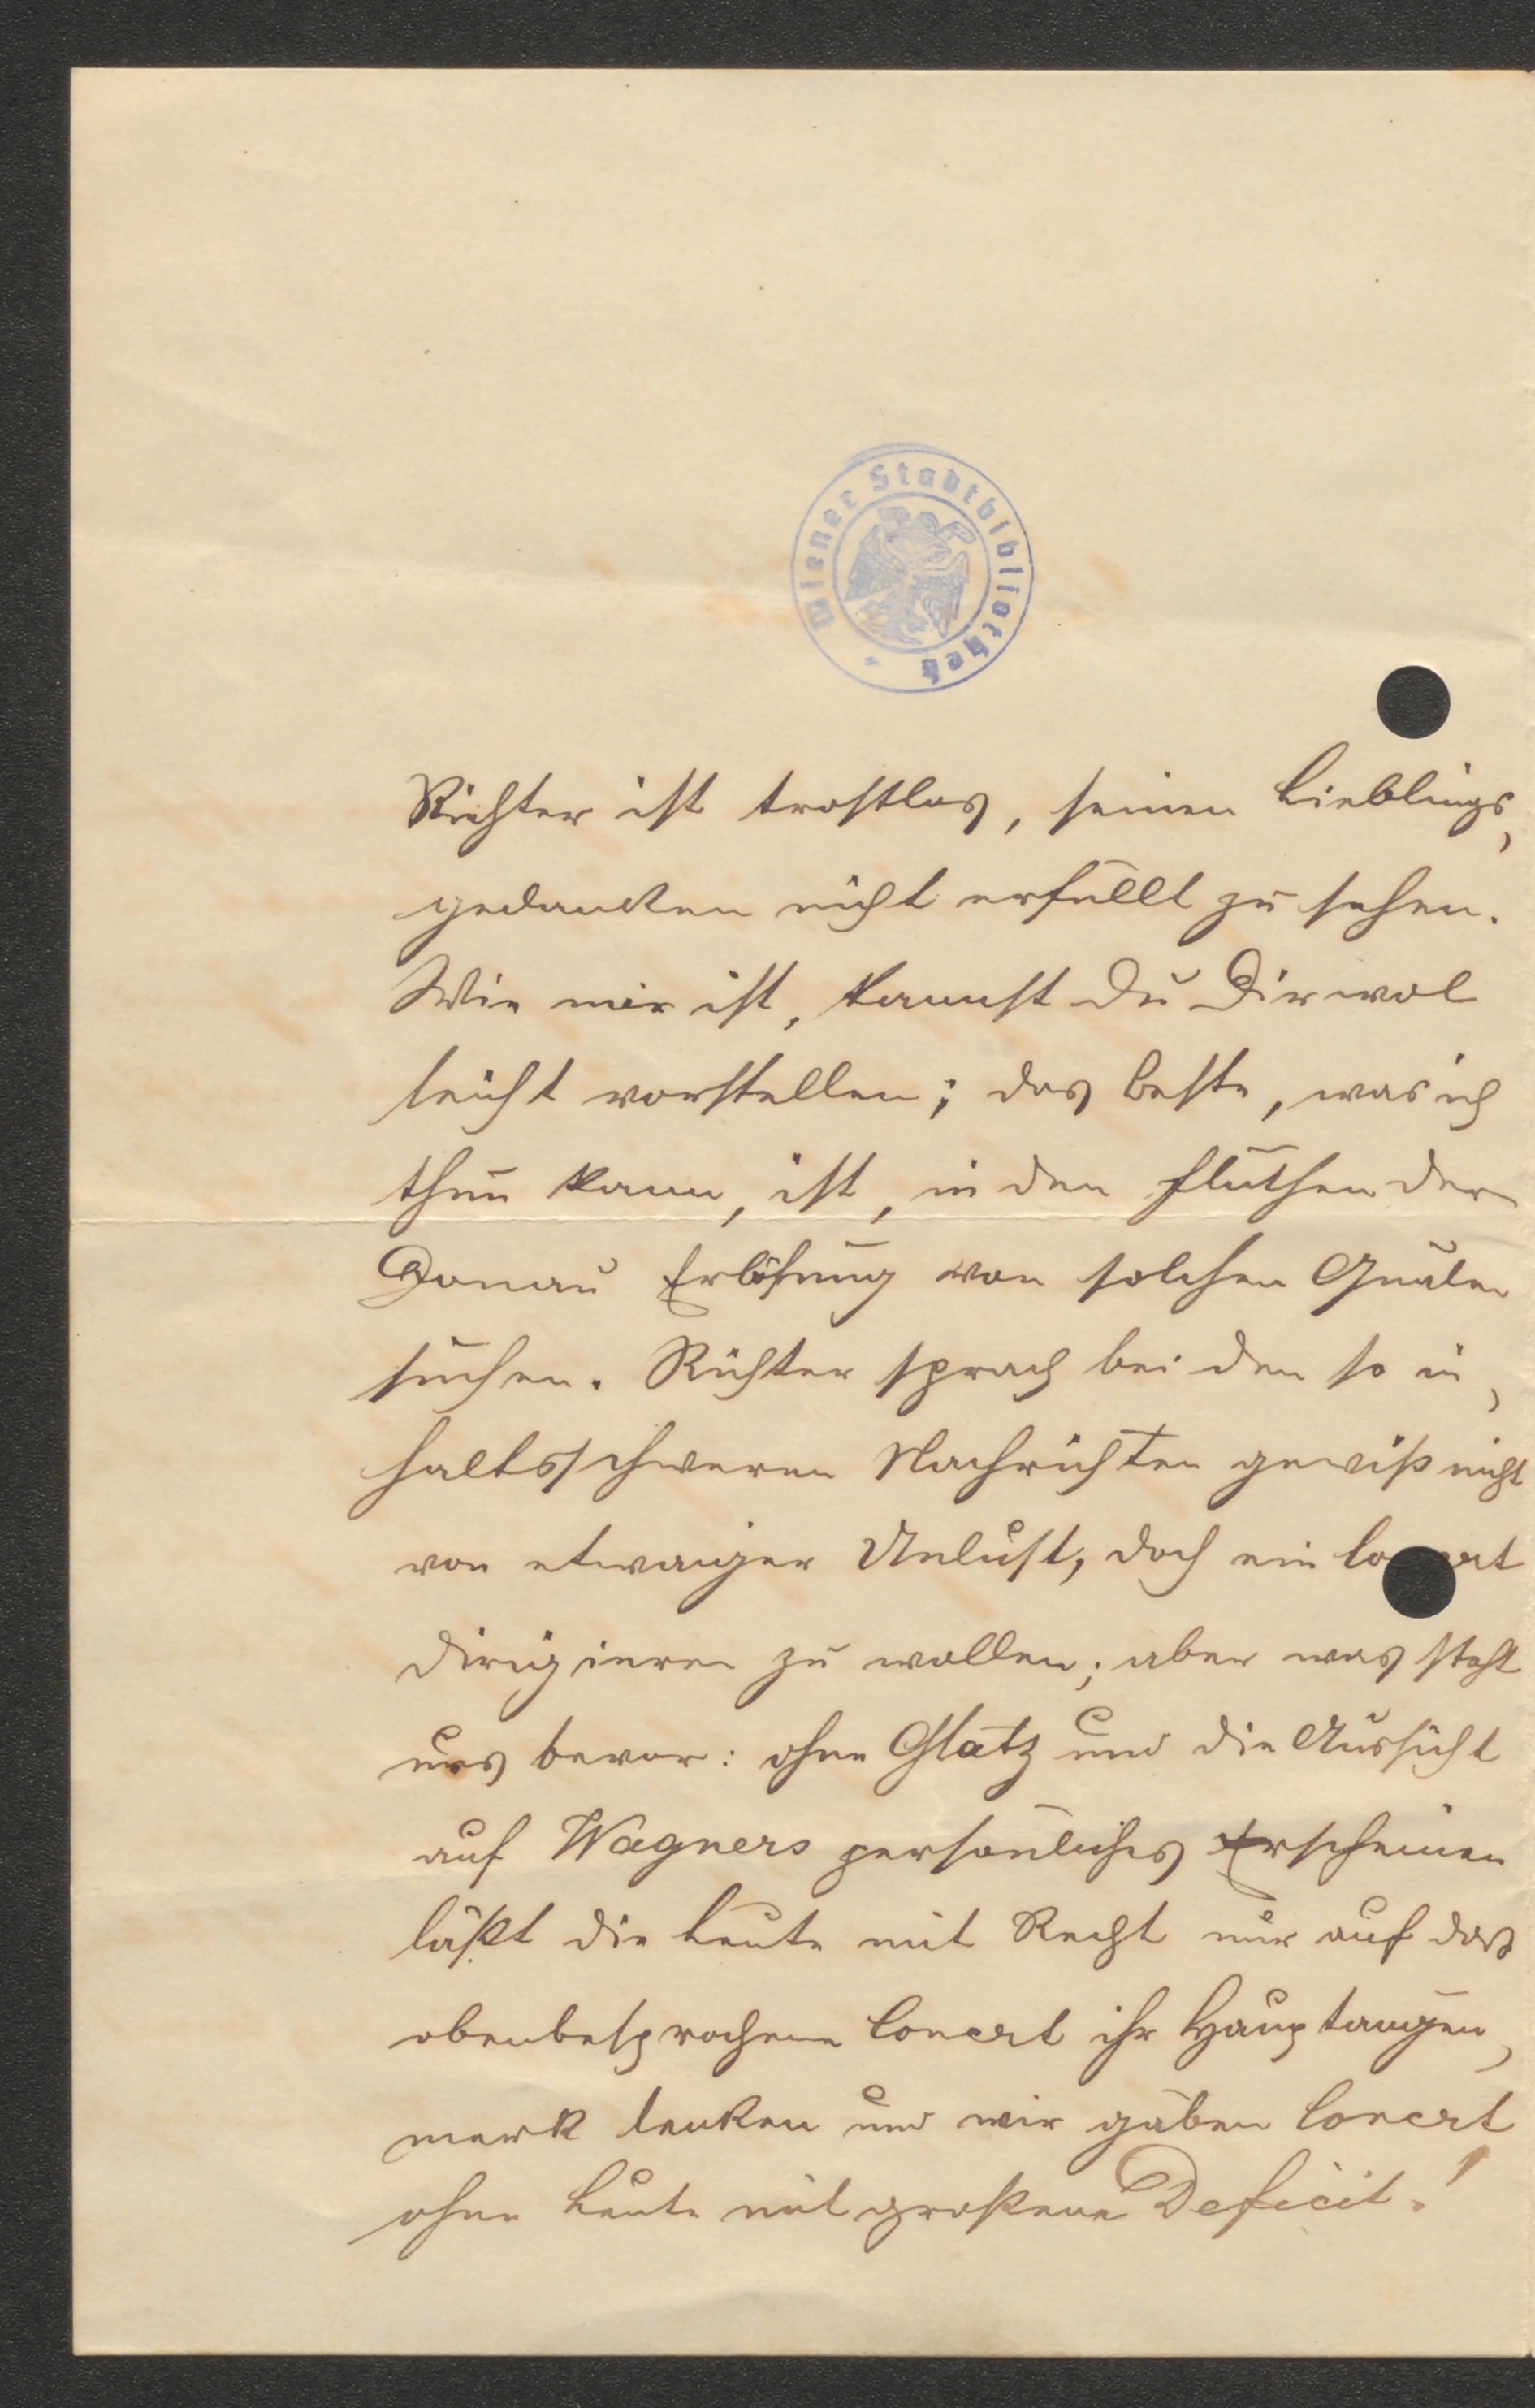 Wiener Stadtbibliothek
Richter ist trostlos, seinen Lieblings,
gedanken nicht erfüllt zu sehen.
Wie mir ist, kannst Du Dir wol
leicht vorstellen; das beste, was ich
thun kann, ist, in den Fluthen der
Donau Erlösung von solchen Qualen
suchen. Richter sprach bei den so in,
haltsschweren Nachrichten gewiß nicht
von etwaiger Unlust, doch ein Concert
dirigieren zu wollen; aber was steht
uns bevor: ohne Glatz und die Aussicht
auf Wagners persönliches Erscheinen
läßt die Leute mit Recht nur auf das
obenbesprochene Concert ihr Hauptaugen,
merk lenken und wir gäben Concert
ohne Leute mit großem Deficit!